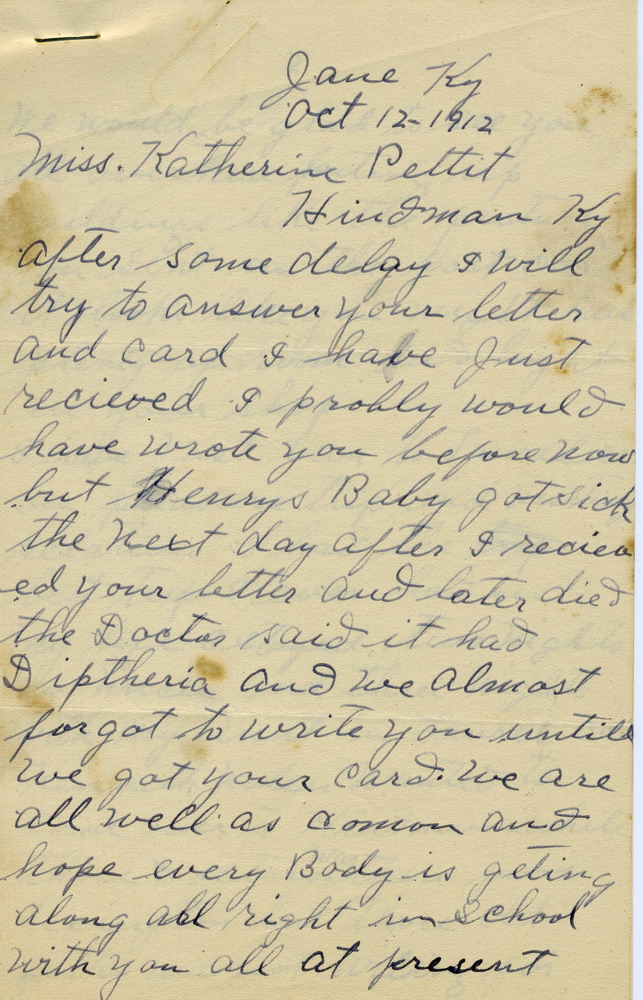 Jane Ky
Oct 12-1912
Miss. Katherine Pettit
Hindman Ky
after some delay I will
try to answer your letter
and card I have Just
recieved I probly would
have wrote you before now
but Henrys Baby got sick
the next day after I reciev
ed your letter and later died
the Doctor said it had
Diptheria and we almost
forgot to write you untill
we got your card. We are
all well as comon and
hope every Body is geting
along all right in School
with you all at present